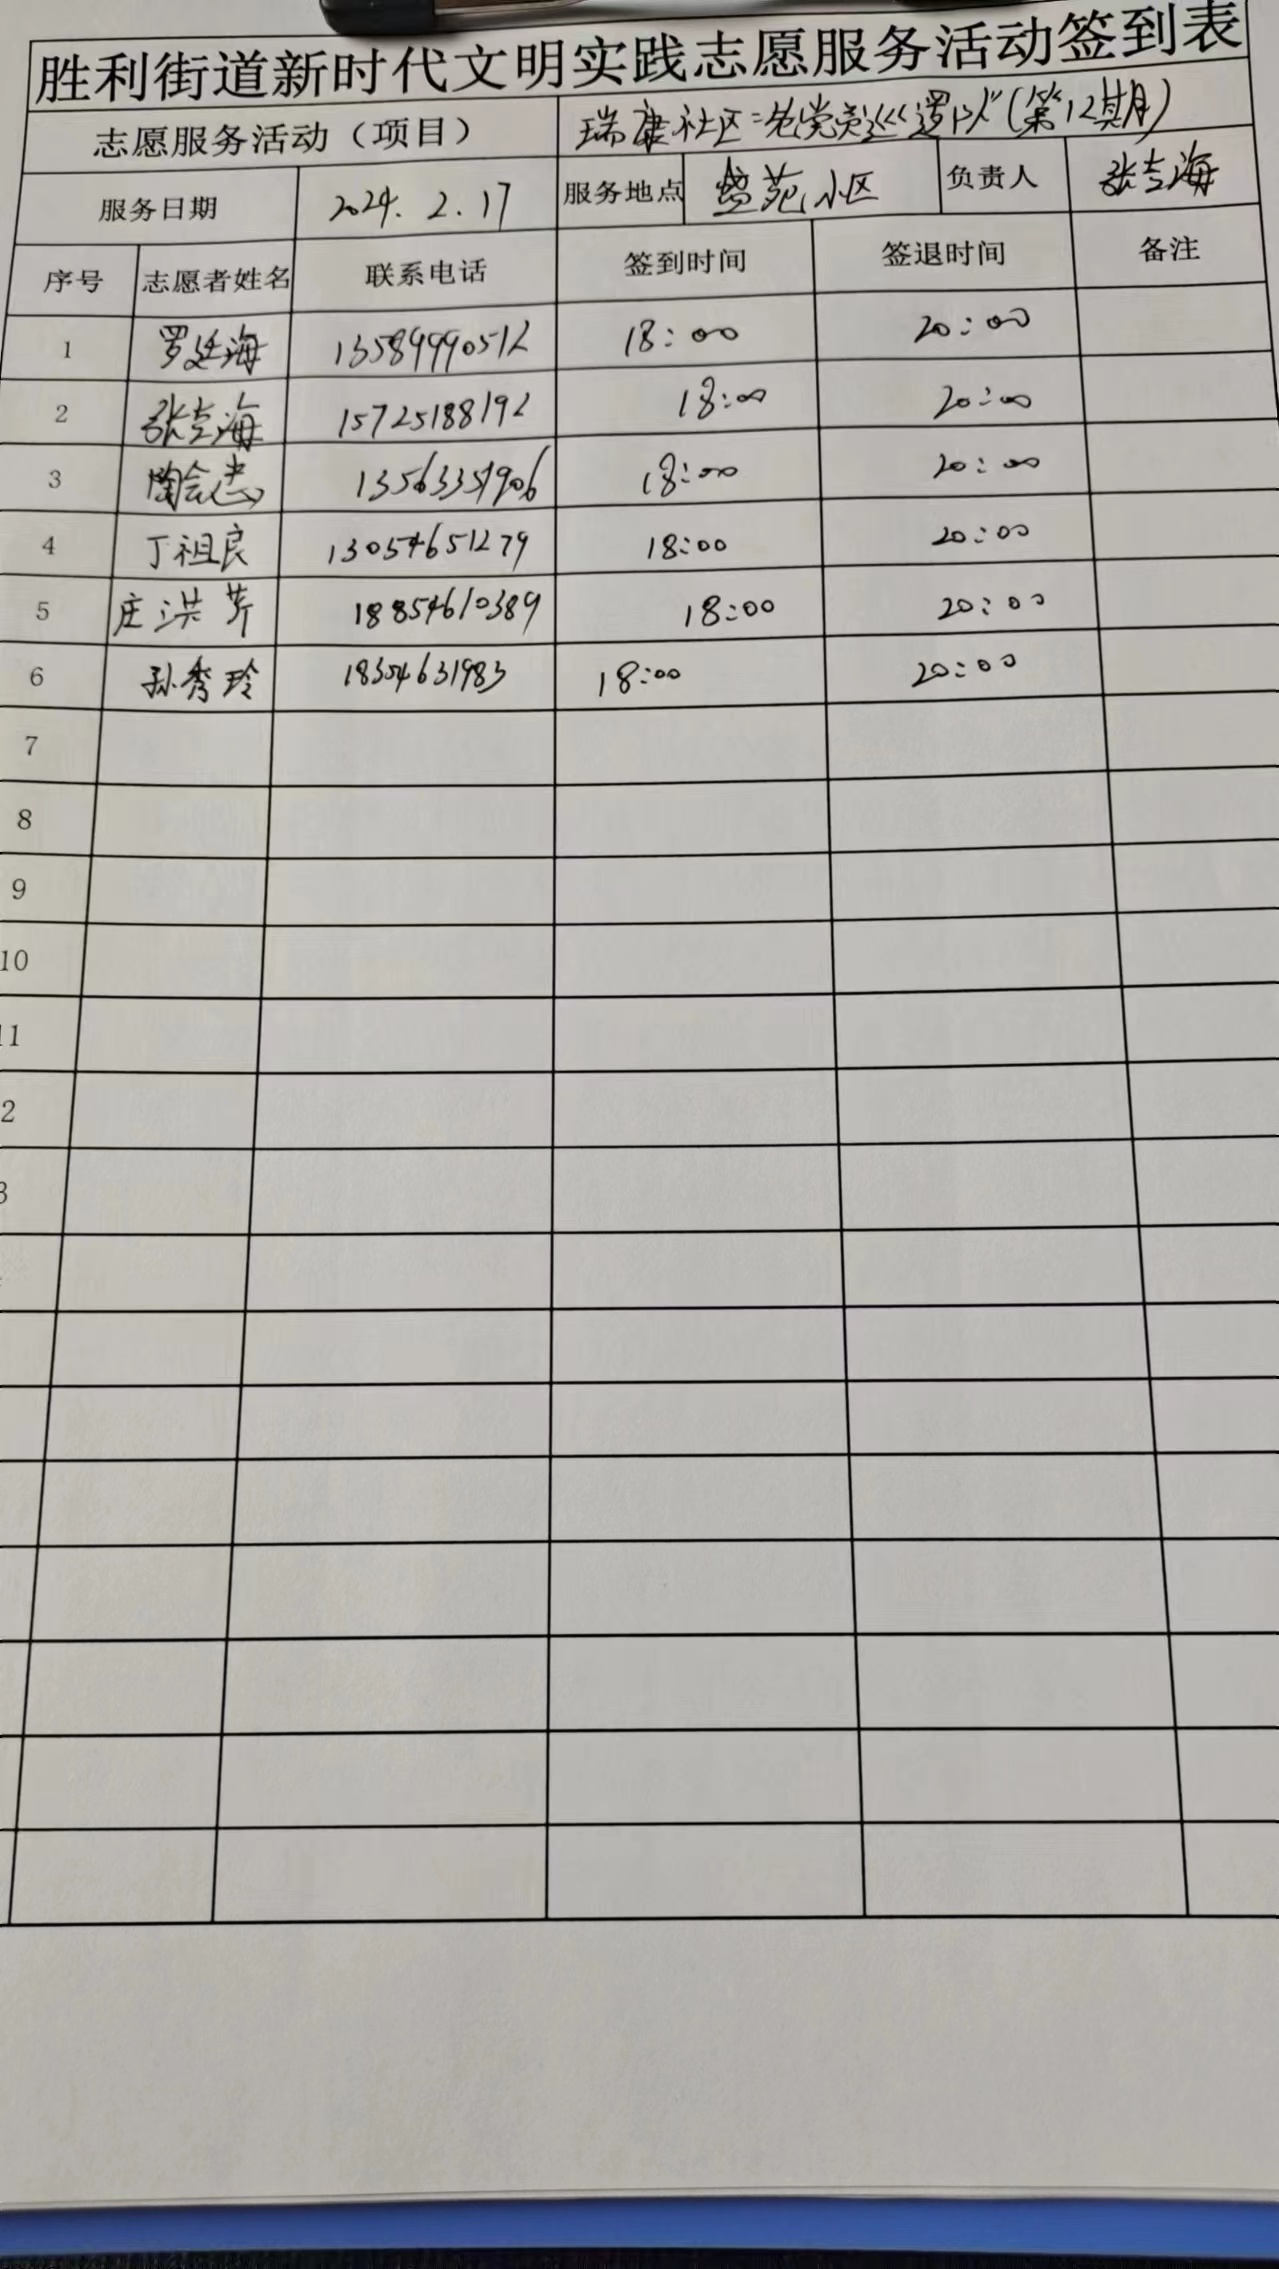 胜利街道新时代文明实践志愿服务活动签到表
志愿服务活动（项目） 瑞康社区"老党员巡逻队"(第12期)
服务日期 2024.2.17 服务地点 盛苑小区 负责人 张吉海
序号 志愿者姓名 联系电话 签到时间 签退时间 备注
1 罗廷海 13589990512 18:00 20:00
2 张吉海 15725188192 18:00 20:00
3 陶会志 13563351906 18:00 20:00
4 丁祖良 13054651279 18:00 20:00
5 庄洪芹 18854610389 18:00 20:00
6 孙秀玲 18354631983 18:00 20:00
7
8
9
10
11
2
3